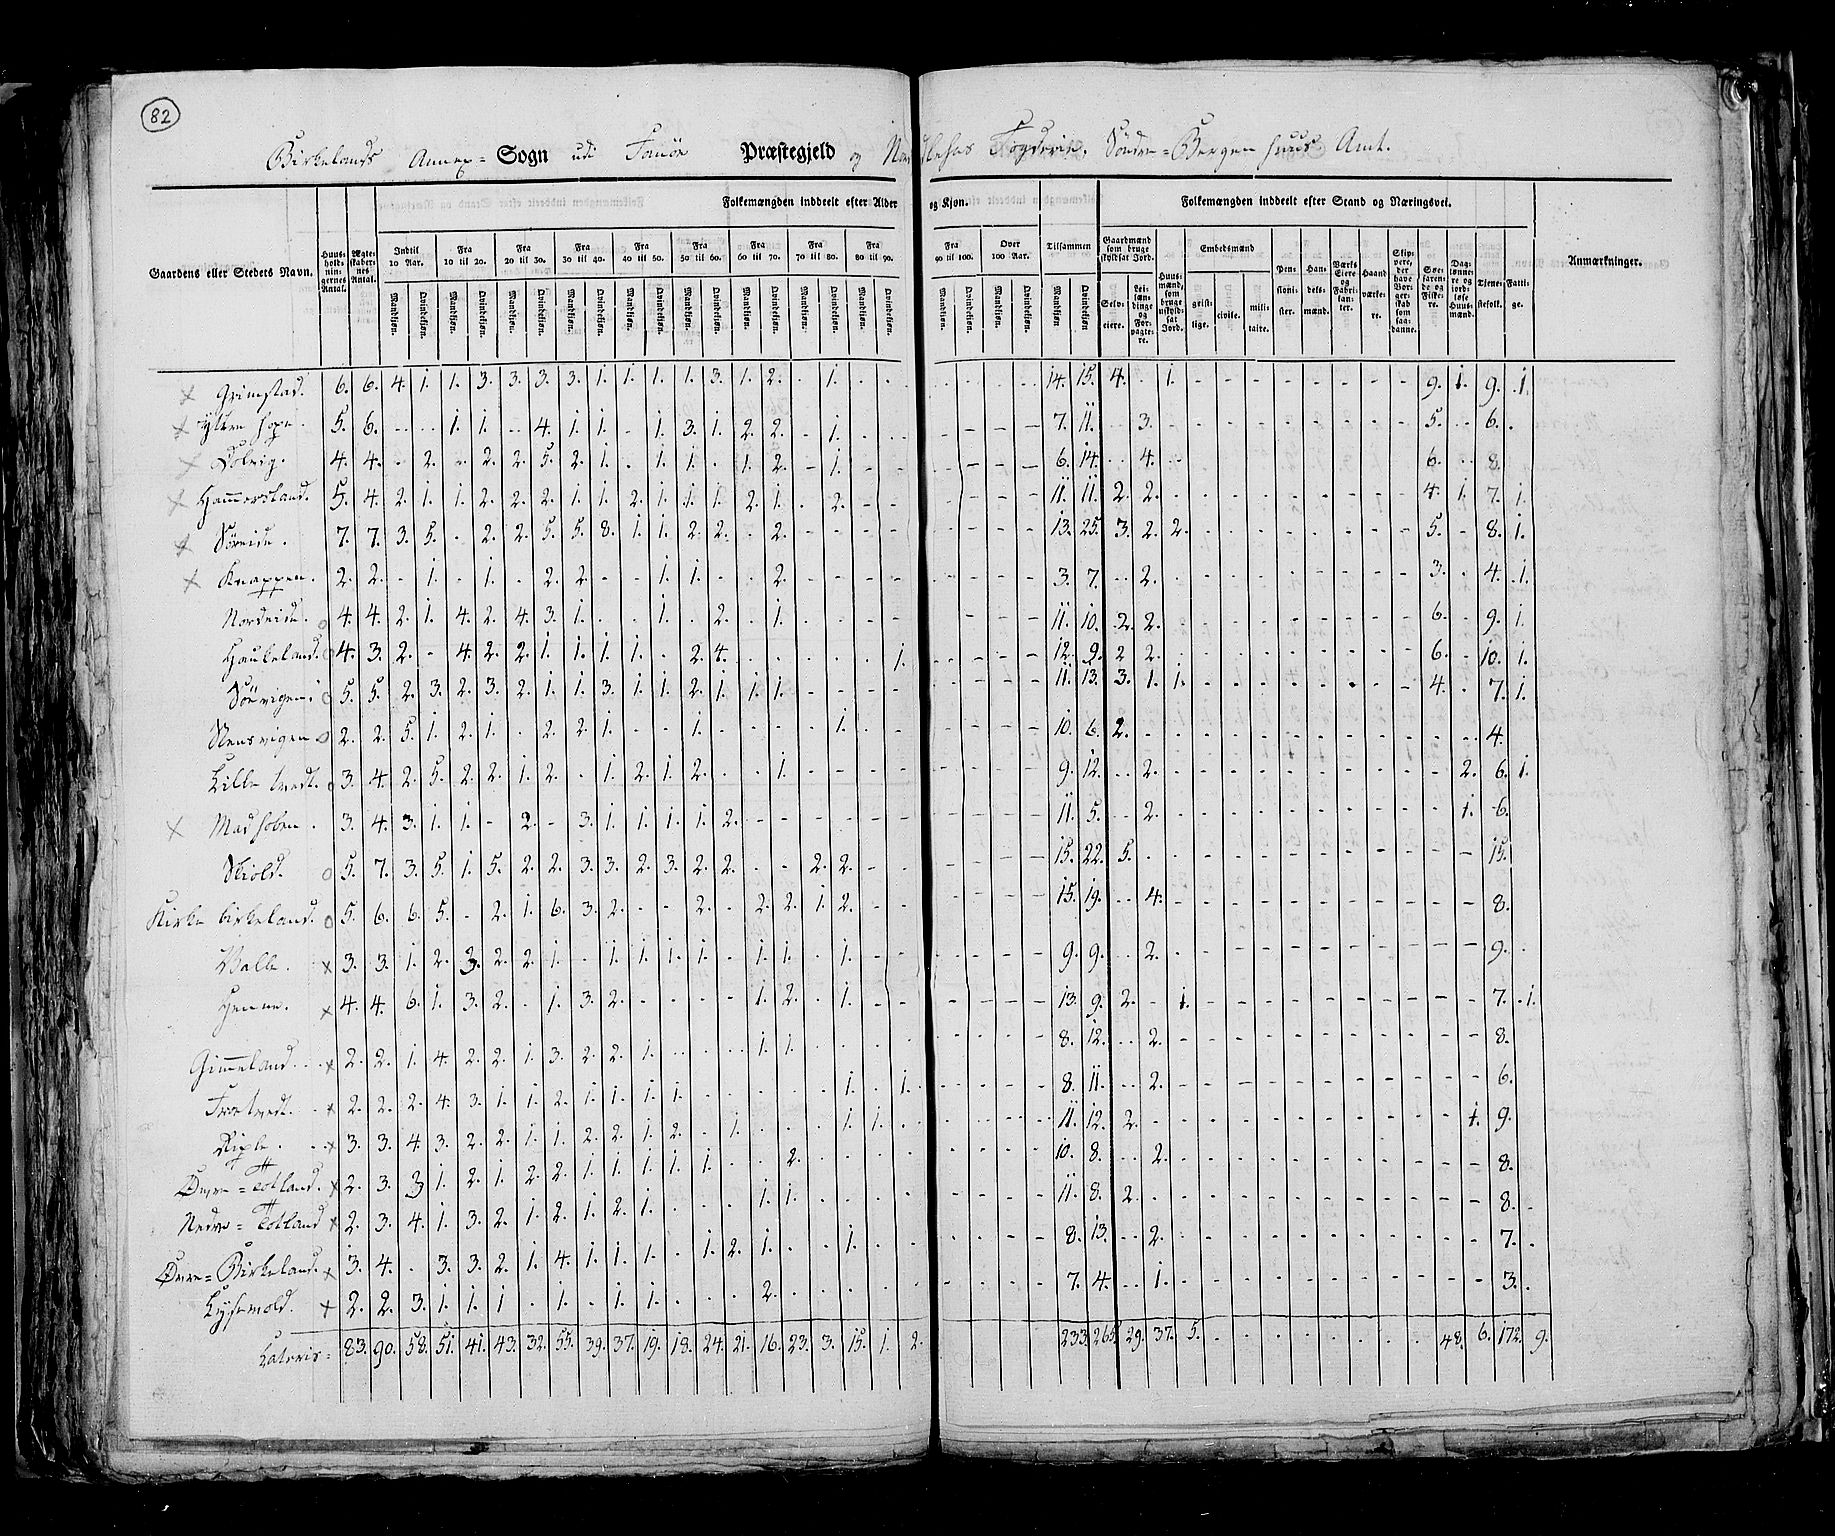 82
Birkelands Annex= Sogn udi Fanöe Præstegjeld og Nordlehns Fogderie, Söndre=Bergenhuus Amt.
Gaardens eller Stedets Navn. Huus-holdnin-gernes Antal. Ægte-skaber-nes Antal. Folkemængden inddeelt efter Alder og Kjøn. Tilsammen Folkemængden inddeelt efter Stand og Næringsvei. Anmærkninger.
Indtil 10 Aar. Fra 10 til 20. Fra 20 til 30. Fra 30 til 40. Fra 40 til 50. Fra 50 til 60. Fra 60 til 70. Fra 70 til 80. Fra 80 til 90. Fra 90 til 100. Over 100 Aar.
Gaardmænd som bruge skyldsat Jord. Huus-mænd, som bruge uskyld-sat Jord. Embedsmænd Pen-sioni-ster. Han-dels-mænd. Værks Eiere og Fabri-kan-ter. Haand værke-re. Skip-pere, der have Bor-ger-skab som saa-danne. Søe-faren-de og Fiske-re. Dag-lønne-re og jord-løse Huus-mænd. Tjene-stefolk. Fatti-ge.
Mandkjøn. Qvindekjøn. Mandkjøn. Qvindekjøn. Mandkjøn. Qvindekjøn. Mandkjøn. Qvindekjøn. Mandkjøn. Qvindekjøn. Mandkjøn. Qvindekjøn. Mandkjøn. Qvindekjøn. Mandkjøn. Qvindekjøn. Mandkjøn. Qvindekjøn. Mandkjøn. Qvindekjøn. Mandkjøn. Qvindekjøn. Mandkjøn. Qvindekjøn. Selv-eiere. Lei-læn-dinge og For-pagte-re. geist-lige. civile. mili-taire.
× Grimstad. 6. 6. 4. 1. 1. 3. 3. 3. 3. 1. 1. 1. 1. 3. 1. 2. - 1. 14. 15. 4. - 1. 9. 1. 9. 1.
× Yttre Hope. 5. 6. - - 1. 1. - 4. 1. 1. - 1. 3. 1. 2. 2. - 1. 7. 11. - 3. 5. - 6.
× Dolvig. 4. 4. - 2. - 2. 2. 5. 2. 1. - 1. 1. - 1. 2. - 1. 6. 14. - 4. 6. - 8.
× Hammersland. 5. 4. 2. 1. 1. 2. 2. 2. 1. 1. 2. 1. 1. 1. 2. 1. - 2. 11. 11. 2. 2. 4. 1. 7. 1.
× Söreide. 7. 7. 3. 5. - 2. 2. 5. 5. 8. 1. 1. 2. 2. - 2. 13. 25. 3. 2. 2. 5. - 8. 1.
× Knappen. 2. 2. - 1. - 1. - 2. 2. - - 1. 1. - - 2. 3. 7. - 2. 3. - 4. 1.
Nordeide. o 4. 4. 2. 1. 4. 2. 4. 3. 1. - - 1. - 2. - 1. 11. 10. 2. 2. 6. - 9. 1.
Haukeland. o 4. 3. 2. - 4. 2. 2. 1. 1. 1. 1. - 2. 4. - - - - - 1. 12. 9. 2. 2. 6. - 10. 1.
Sörvigen o 5. 5. 2. 3. 2. 3. 2. 1. 1. 3. 1. 1. 2. 1. 1. 1. 11. 13. 3. 1. 1. 4. - 7. 1.
Stensvigen o 2. 2. 5. 1. 2. 1. - 2. 2. 1. - - 1. - - - - 1. 10. 6. 2. 4.
Lille tvedt. o 3. 4. 2. 5. 2. 2. 1. 2. - 1. 2. 1. 2. - - 1. 9. 12. - 2. 2. 6. 1.
× Madhoben. 3. 4. 3. 1. 1. - 2. - 3. 1. 1. 1. 1. 2. 11. 5. - 2. 1. 6.
Skiold. o 5. 7. 3. 5. 1. 5. 2. 2. 3. 3. 2. 3. 2. 2. - - 2. 2. 15. 22. 5. 15.
Kirke birkeland. o 5. 6. 6. 5. - 2. 1. 6. 3. 2. - - 2. - 2. 2. 1. 2. 15. 19. - 4. 8.
Valle. × 3. 3. 1. 2. 3. 2. 2. 1. - 1. 1. 1. 1. - 1. 1. - 1. 9. 9. - 2. 9.
Henne. × 4. 4. 6. 1. 3. 2. - 1. 3. 2. - - - - 1. 2. - 1. 13. 9. 2. - 1. 7. 1.
Gimmeland. × 2. 2. 1. 4. 2. 2. 1. 3. 2. 2. 1. - - - 1. 1. 8. 12. - 2. 8.
Frotvedt. × 2. 2. 2. 4. 3. 1. 1. 2. 1. 1. 1. 1. - - - - - 1. - 1. 8. 11. - 2. 6.
Riple. × 3. 3. 4. 3. 2. 2. 1. 1. 2. 2. 1. 2. - 1. - - - 1. 1. 11. 12. 2. 1. 9.
Övre=Totland. × 2. 3. 3 1. 2. 1. 2. 2. 1. 1. 1. 1. 1. - - 2. 10. 8. - 2. 8.
Nedre=Totland × 2. 3. 4. 1. 3. 2. 1. 2. 1. 2. 1. - - - 1. 1. 11. 8. 2. 8.
Övre=Birkeland. × 3. 4. - 3. 3. 2. 1. 4. 1. 1. 1. - 1. 2. 1. - - 1. 8. 13. - 2. 7.
Lysemold. × 2. 2. 3. 1. 1. 1 - 1. - 1. 1. - - - 2. 7. 4. - 1. 3.
Lateris= 83. 90. 58. 51. 41. 43. 32. 55. 39. 37. 19. 18. 24. 21. 16. 23. 3. 15. 1. 2. 233. 265. 29. 37. 5. 48. 6. 172. 9.